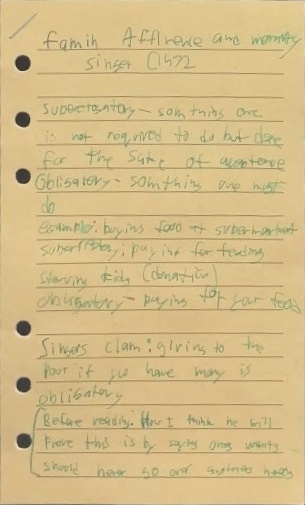 Famin Afflnence and morality
Singer (1972
Supererogatory - somthing one
is not required to do but done
for the sake of
Obligatory - somthing one must
do
example: buying food at supermarket
: paying for feeding
starving kids (donation)
obligatory - paying for your food
Singers claim: giving to the
poor if you have money is
obligatory
Before reading: How I think he will
prove this is by saying ones wants
should never go over anothers needs